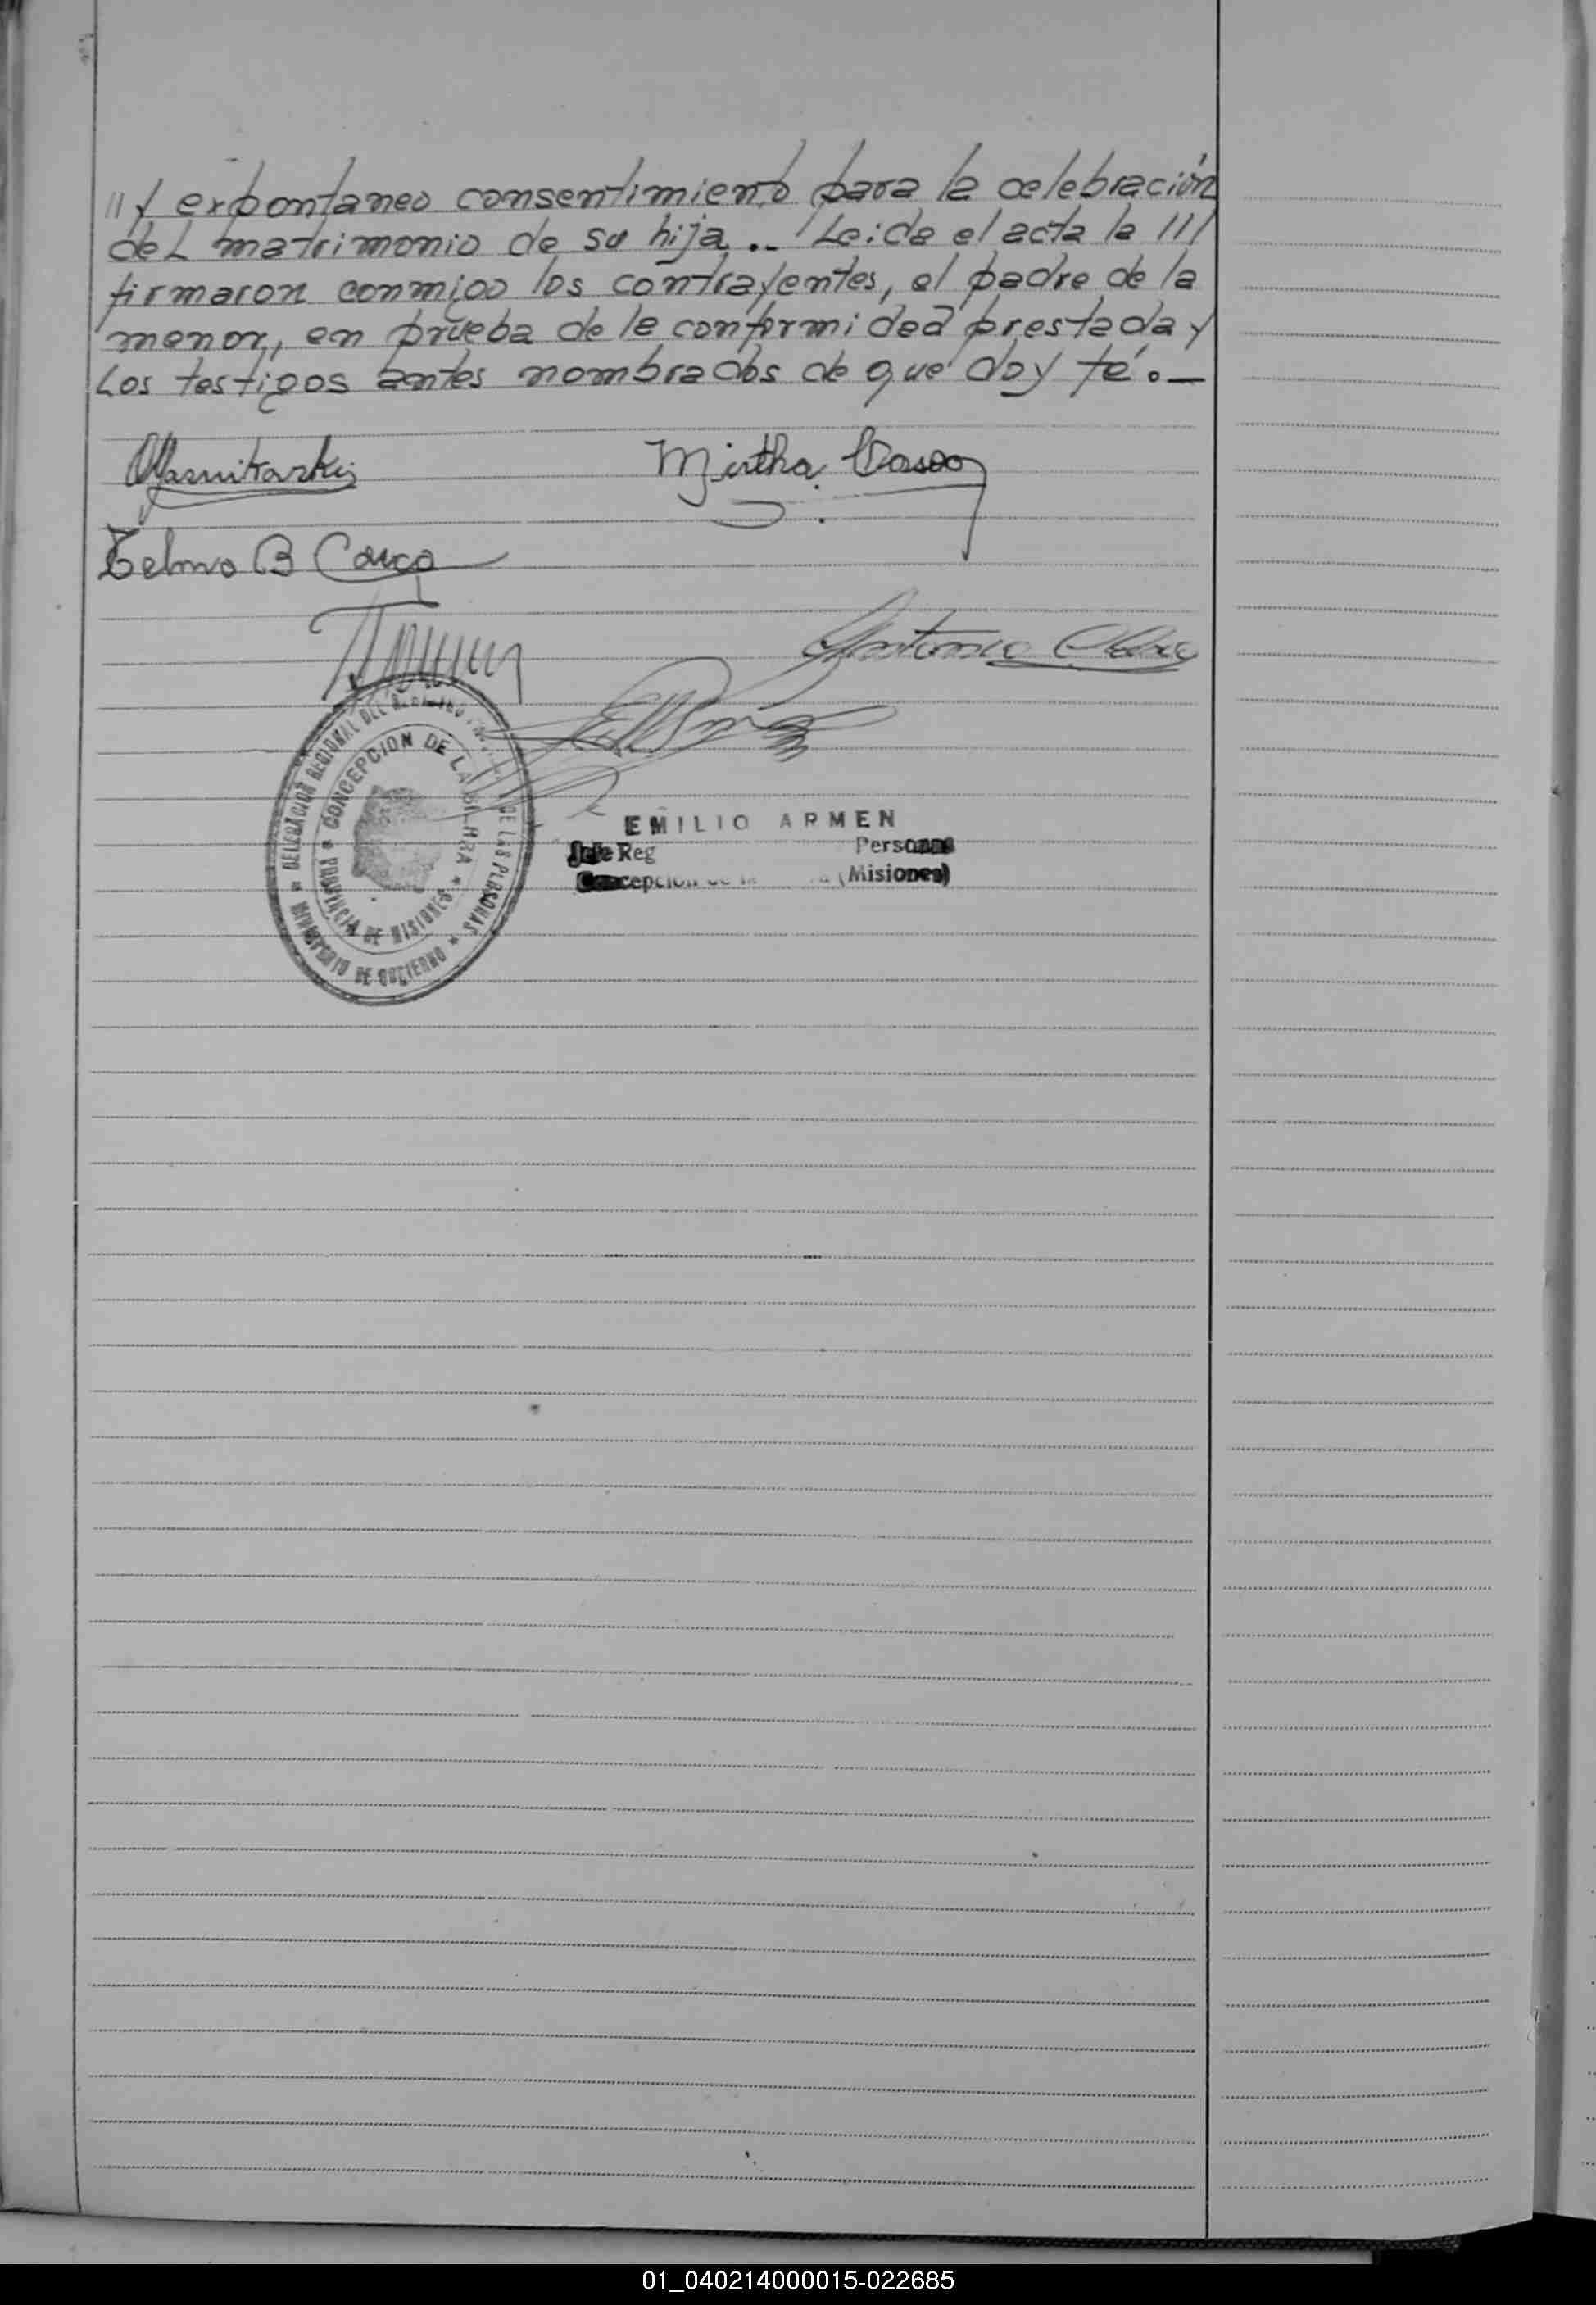 // y expontaneo consentimiento para la celebración
del matrimonio de su hija.- Leida el acta la ///
firmaron conmigo los contrayentes, el padre de la
menor, en prueba de la conformidad prestada y
Los testigos antes nombrados de que doy fé.-
Mirtha
Telmo B
Antonio
DELEGACION REGIONAL DEL REGISTRO DE LAS PERSONAS
* MINISTERIO DE GOBIERNO *
* CONCEPCION DE LA SIERRA *
PROVINCIA DE MISIONES
EMILIO ARMEN
Jefe Reg Personas
Concepcion de la (Misiones)
01_040214000015-022685